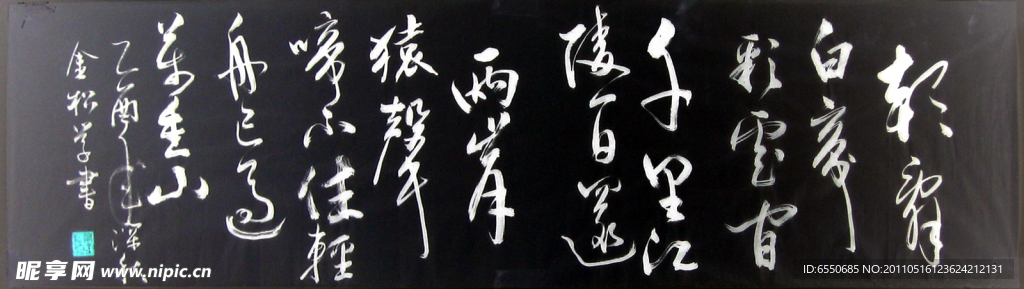 朝辞
白帝
彩雲間
千里江
陵百還
兩岸
猿聲
啼不住輕
舟已過
萬重山
乙酉年深秋
金松学書
昵享网 www.nipic.cn
ID:6550685 NO:20110516123624212131